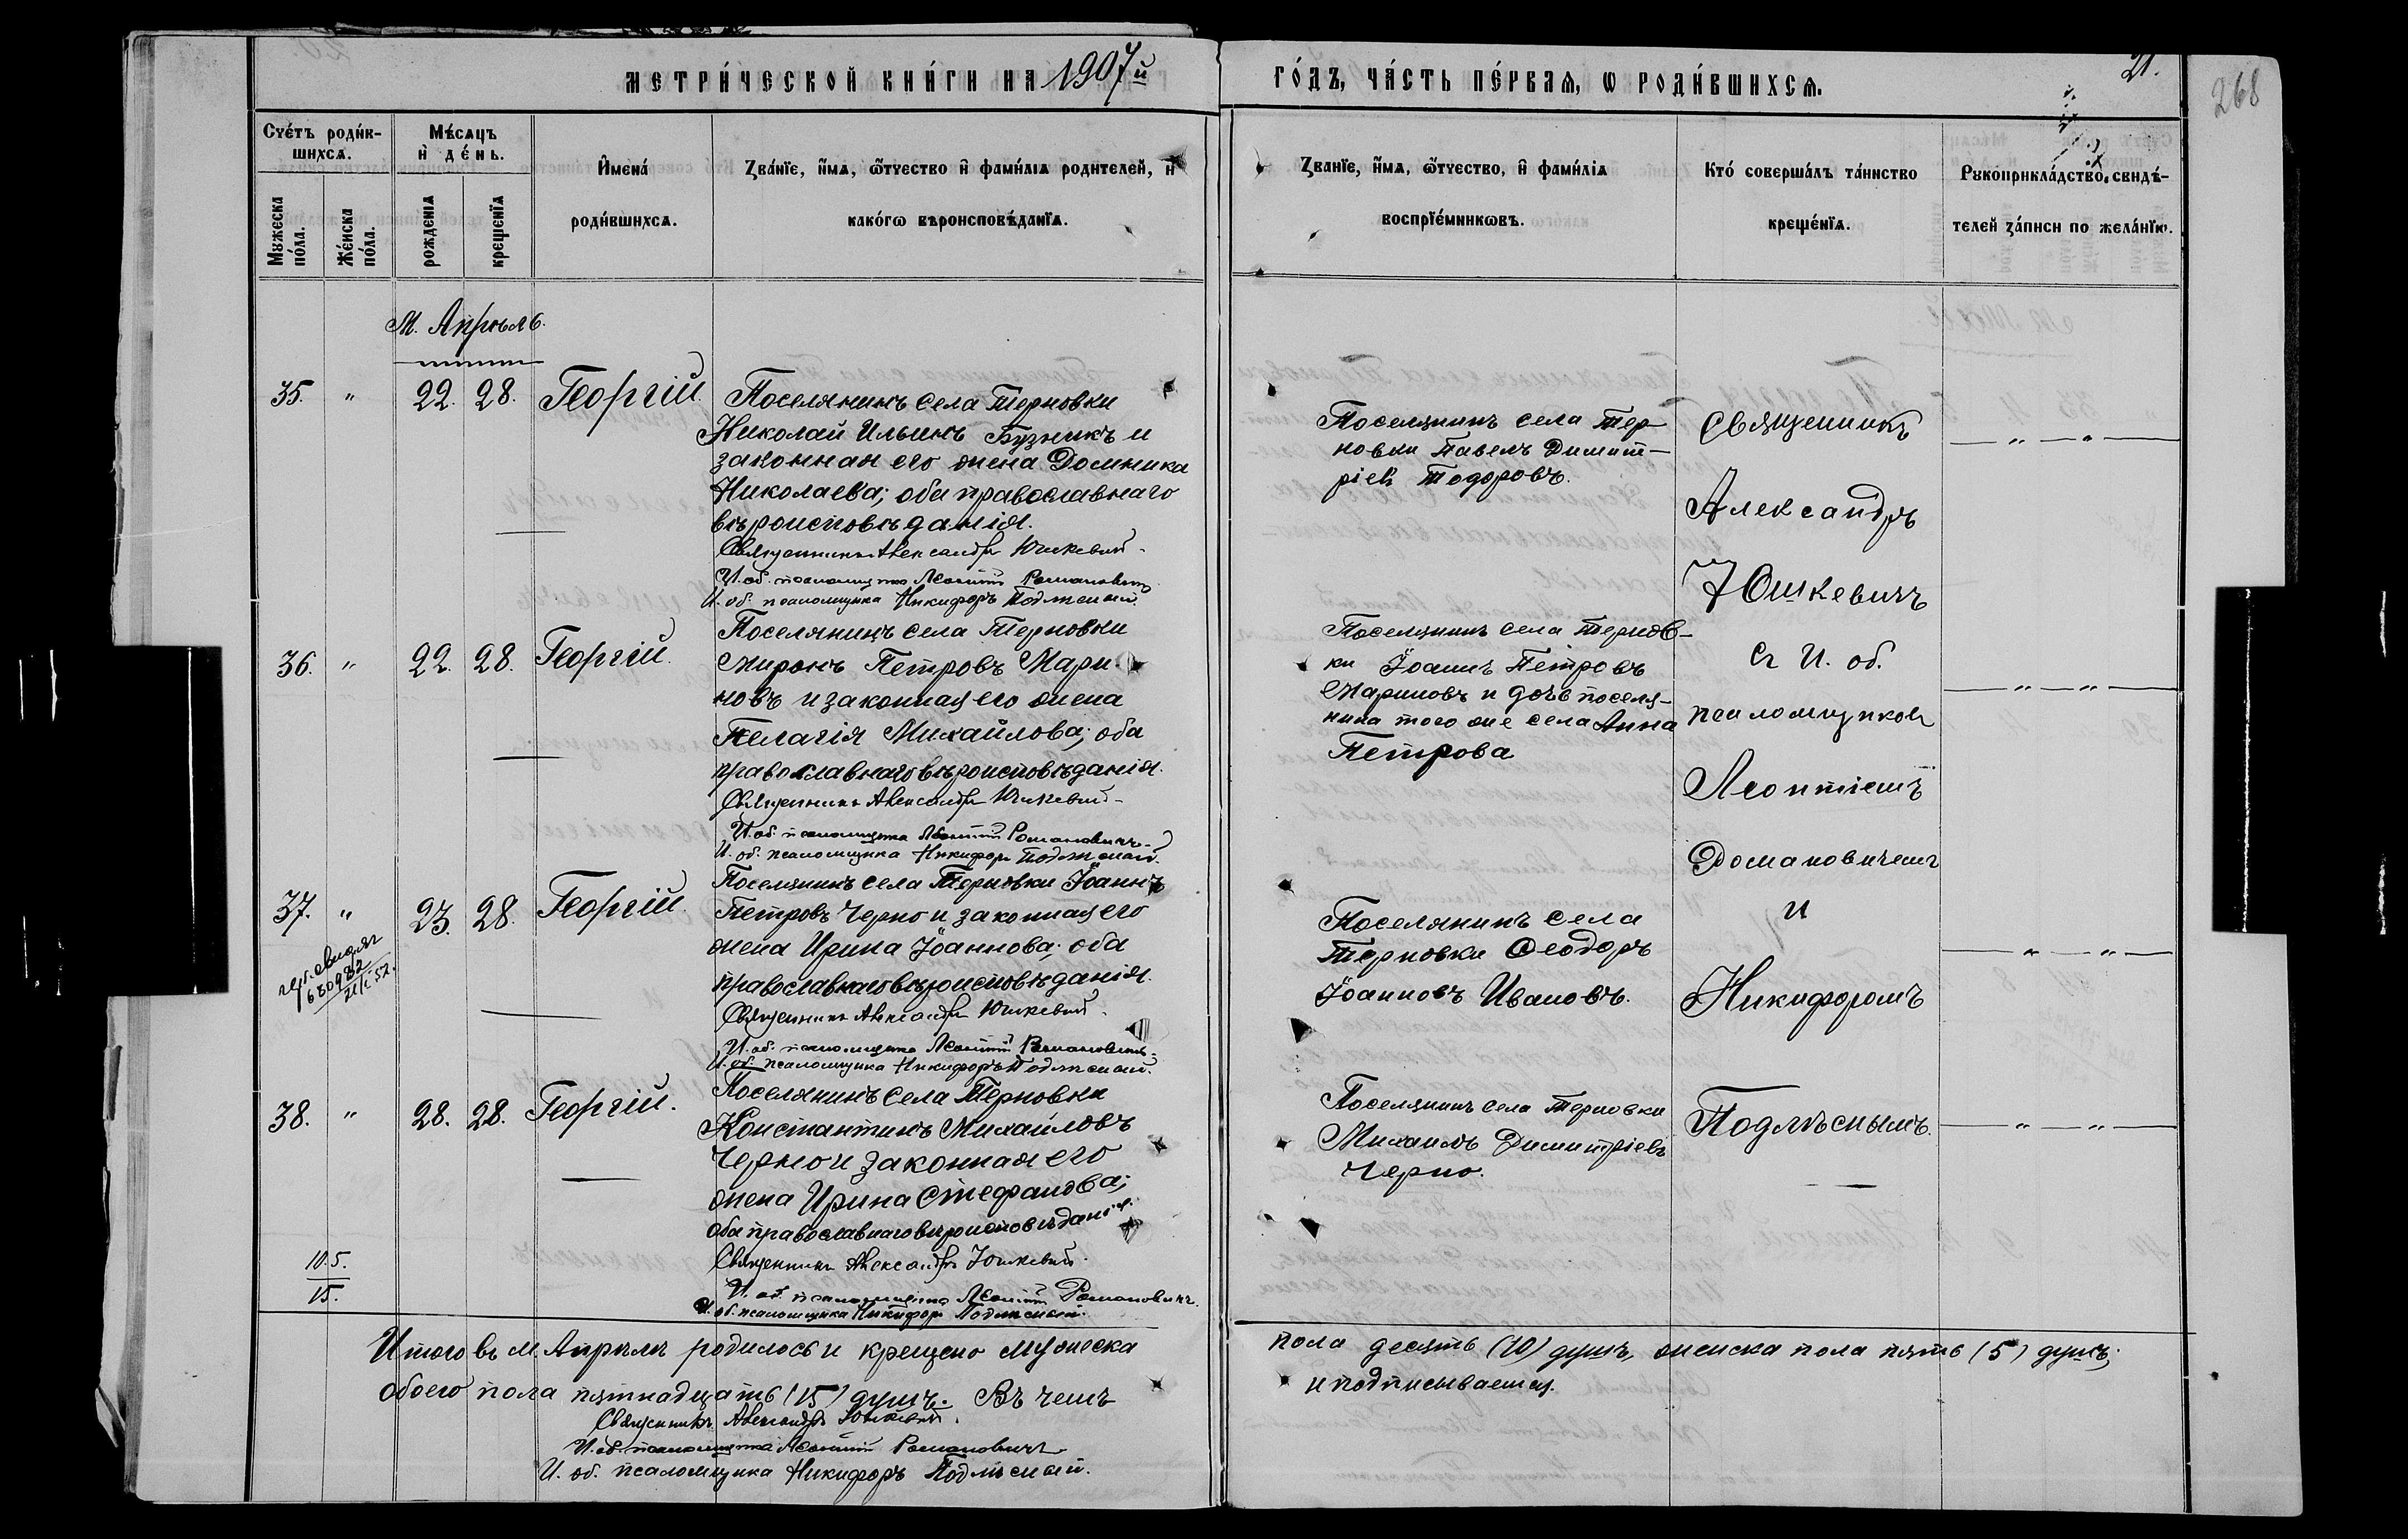 МЕТРИ́ЧЕСКОЙ КНИ́ГИ НА 1907й
ГО́ДЪ, ЧА́СТЬ ПЕ́РВАѦ, Ѡ РОДИ́ВШИХСѦ.
21.
268
Сче́тъ роди́в-
шихсѧ.
Мꙋжеска по́ла.
Же́нска по́ла.
Мѣ́сѧцъ
и҆ де́нь.
рожденїѧ
крещенїѧ
И҆мена́
роди́вшихсѧ.
Зва́нїе, и҆́мѧ, ѻ҆́тчество и҆ фами́лїѧ родителей, и҆
како́гѡ вѣроисповѣ́данїѧ.
Зва́нїе, и҆́мѧ, ѻ҆́тчество, и҆ фами́лїѧ
воспрїе́мникѡвъ.
Кто́ соверша́лъ та́инство
креще́нїѧ.
Рꙋкоприкла́дство свидѣ́-
телей за́писи по жела́нїю.
М. Апрѣль.
35. " 22. 28. Георгій.
Поселянинъ села Терновки
Николай Ильинъ Бузникъ и
законная его жена Домника
Николаева; оба православнаго
вѣроисповѣданія.
Священникъ Александръ Юшкевичъ.
И. об. псаломщика Леонтій Романовичъ
И. об. псаломщика Никифоръ Подлѣсный.
Поселянинъ села Тер-
новки Павелъ Димит-
ріев Тодоровъ.
36. " 22. 28. Георгій.
Поселянинъ села Терновки
Миронъ Петровъ Мари-
новъ и законная его жена
Пелагія Михайлова; оба
православнаго вѣроисповѣданія.
Священникъ Александръ Юшкевичъ
И. об. псаломщика Леонтій Романовичъ
И. об. псаломщика Никифоръ Подлѣсный.
Поселянинъ села Тернов-
ки Іоаннъ Петровъ
Мариновъ и дочь поселя-
нина того же села Анна
Петрова
37. " 23. 28. Георгій.
630982
21/I 52.
Поселянинъ села Терновки Іоаннъ
Петровъ Черно и законная его
жена Ирина Іоаннова; оба
православнаго вѣроисповѣданія.
Священникъ Александръ Юшкевичъ.
И. об. псаломщика Леонтій Романовичъ
И. об. псаломщика Никифоръ Подлѣсный.
Поселянинъ села
Терновки Ѳеодоръ
Іоанновъ Ивановъ.
38. " 28. 28. Георгій.
Поселянинъ села Терновки
Константинъ Михайловъ
Черно и законная его
жена Ирина Стефанова;
оба православнаго вѣроисповѣданія.
Священникъ Александръ Юшкевичъ.
И. об. псаломщика Леонтій Романовичъ.
И. об. псаломщика Никифоръ Подлѣсный.
Поселянинъ села Терновки
Михаилъ Димитріевъ
Черно.
Священникъ
Александръ
Юшкевичъ
съ И. об.
псаломщиков
Леонтіемъ
Романовичемъ
и
Никифоромъ
Подлѣснымъ.
10. 5.
15.
Итого въ м. Апрѣлѣ родилось и крещено мужеска
пола десять (10) душъ, женска пола пять (5) душъ;
обоего пола пятнадцать (15) душъ. Въ чемъ
и подписываемся.
Священникъ Александръ Юшкевичъ.
И. об. псаломщика Леонтій Романовичъ
И. об. псаломщика Никифоръ Подлѣсный.